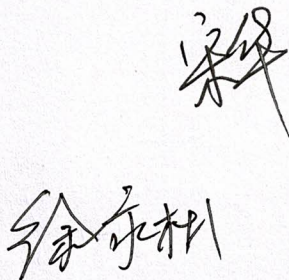 宋华
徐永彬